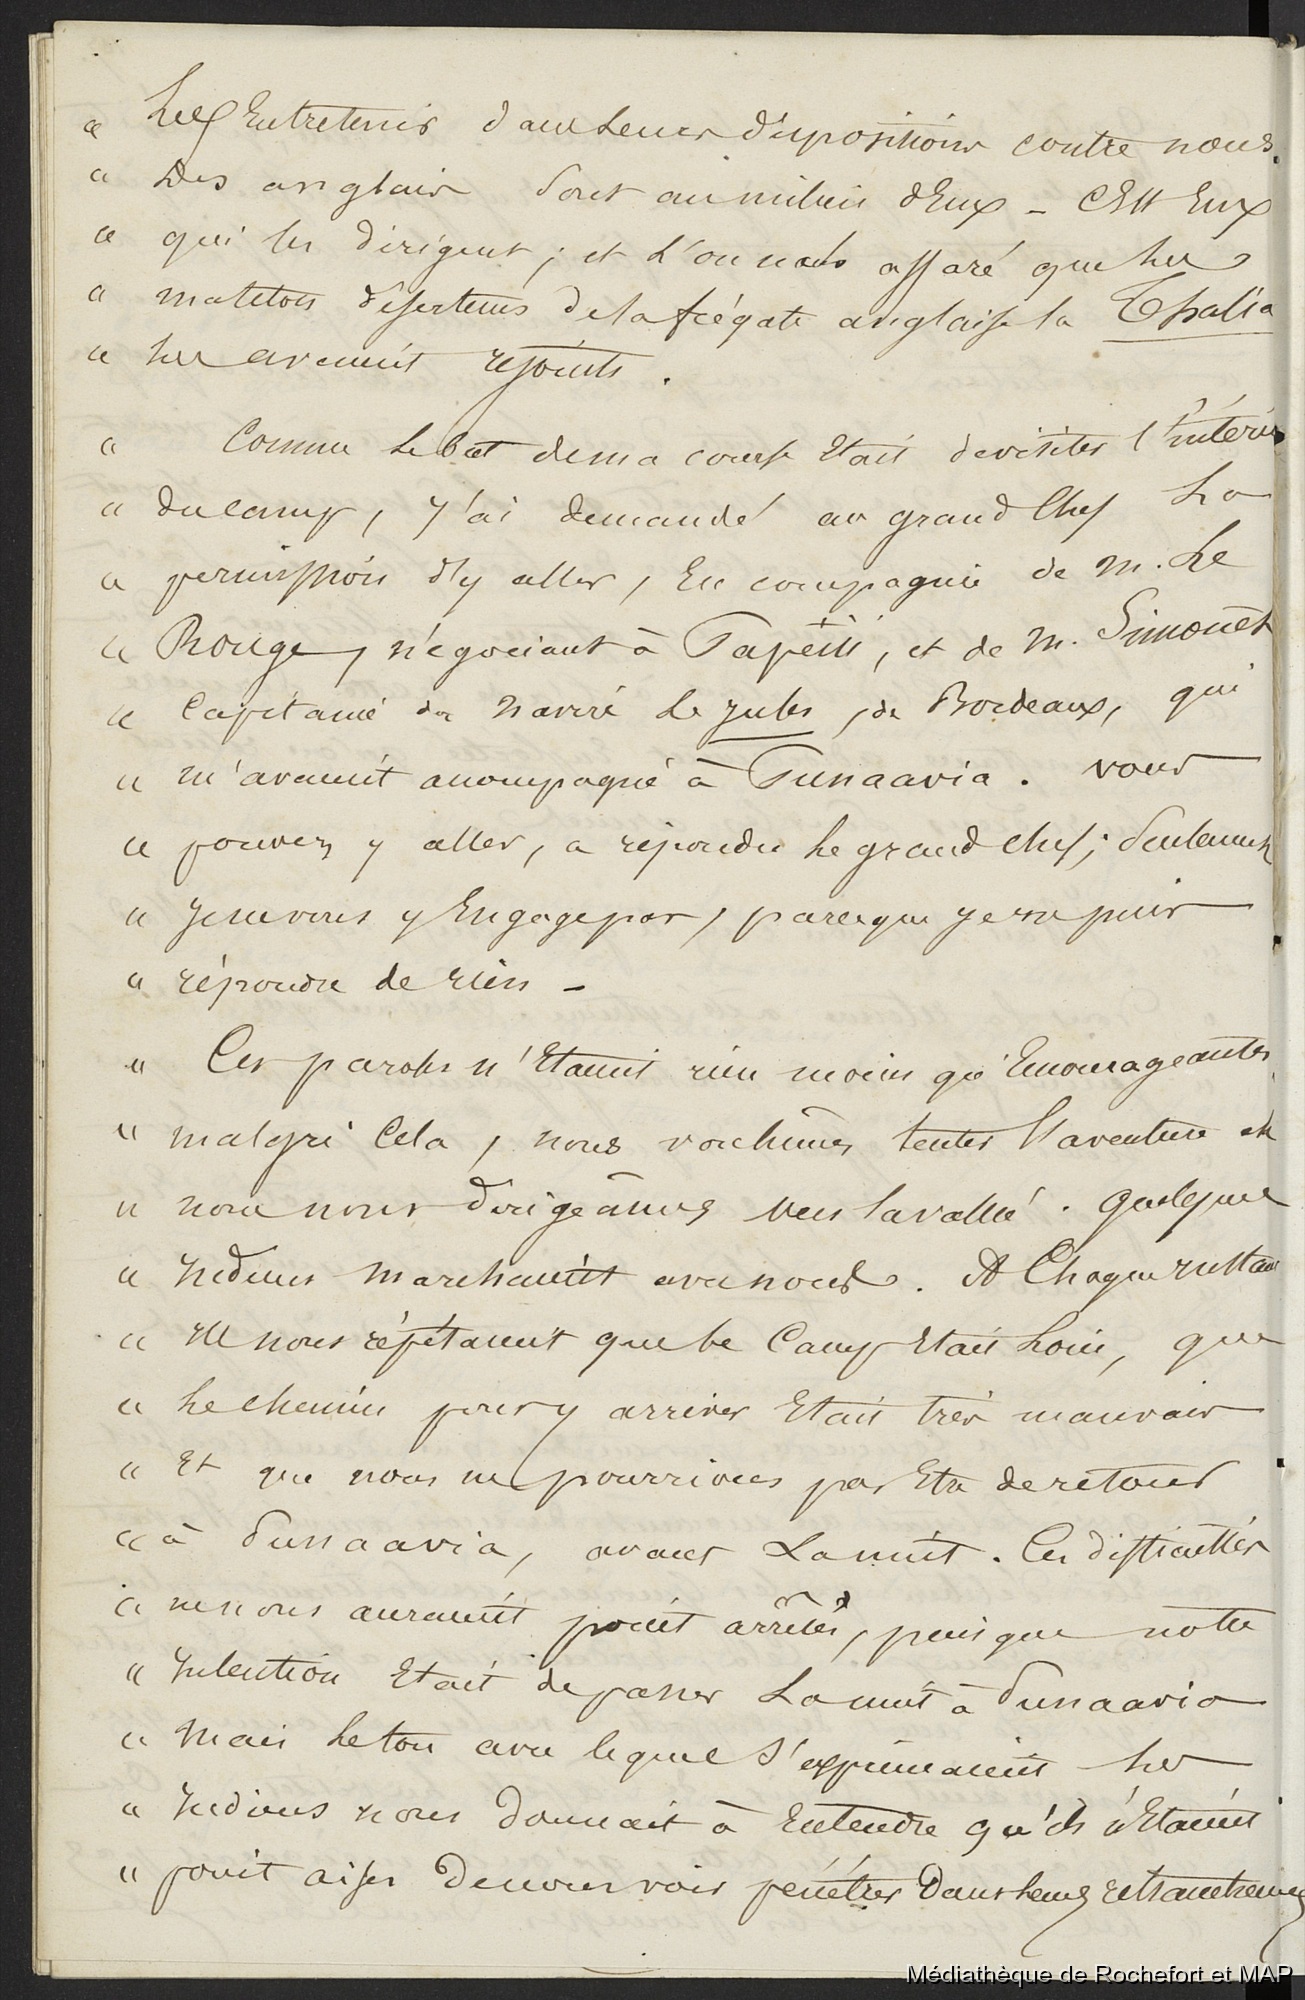 " Les Entretenir dans Leurs dispositions contre nous.
" Des anglais Sont au milieu d'Eux - C'Est Eux
" qui les dirigent ; et L'on nous assuré que Les
" matelots déserteurs de la frégate anglaise la Thalia
" Les avaient rejoints .
" Comme Le but de ma course Etait de visiter l'intérieur
" du camp, j'ai demandé au grand Chef La
" permission d'y aller, En compagnie de M. Le
" Rouge, négociant à Papeïti, et de M. Simonet
" Capitaine du Navire Le Jules, de Bordeaux, qui
" m'avaient accompagné à Punaavia . vous
" pouvez y aller, a répondu Le grand chef; Seulement
" je ne vous y Engage pas, parceque je ne puis
" répondre de rien -
" Ces paroles n'Etaient rien moins qu'Encourageantes,
" malgré Cela, nous voulûmes tenter l'aventure et
" nous nous dirigeâmes vers la vallée . Quelques
" Indiens marchaient avec nous . A Chaque instant
" Ils nous répétaient que le Camp Etait Loin, que
" Le chemin pour y arriver Etait très mauvais
" Et que nous ne pourrions pas Etre de retour
" à Punaavia, avant La nuit . Ces difficultés
" ne nous auraient point arrêtés, puisque notre
" Intention Etait de passer La nuit à Punaavia
" Mais Le ton avec lequel S'exprimaient Les
" Indiens nous donnait à Entendre qu'ils n'Etaient
" point aises De nous voir pénétrer Dans Leurs retranchemens
Médiathèque de Rochefort et MAP